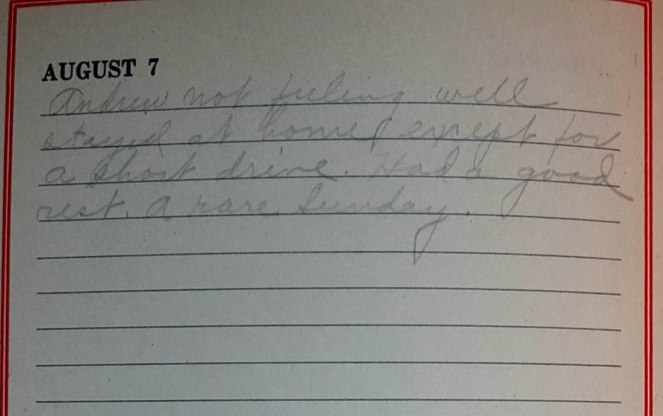 AUGUST 7
Andrew not feeling well
stayed at home, except for
a short drive. Had a good
rest. A rare Sunday.